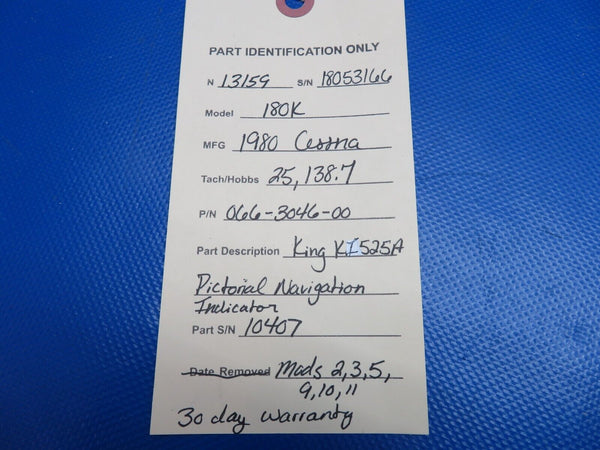 PART IDENTIFICATION ONLY
N 13159 S/N 18053166
Model 180K
MFG 1980 Cessna
Tach/Hobbs 25,138.7
P/N 066-3046-00
Part Description King KI525A
Pictorial Navigation
Indicator
Part S/N 10407
Date Removed Mods 2,3,5,
9,10,11
30 day warranty